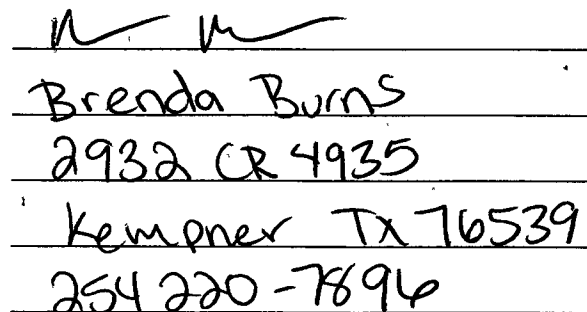 Brenda Burns
2932 CR 4935
Kempner Tx 76539
254 220-7896